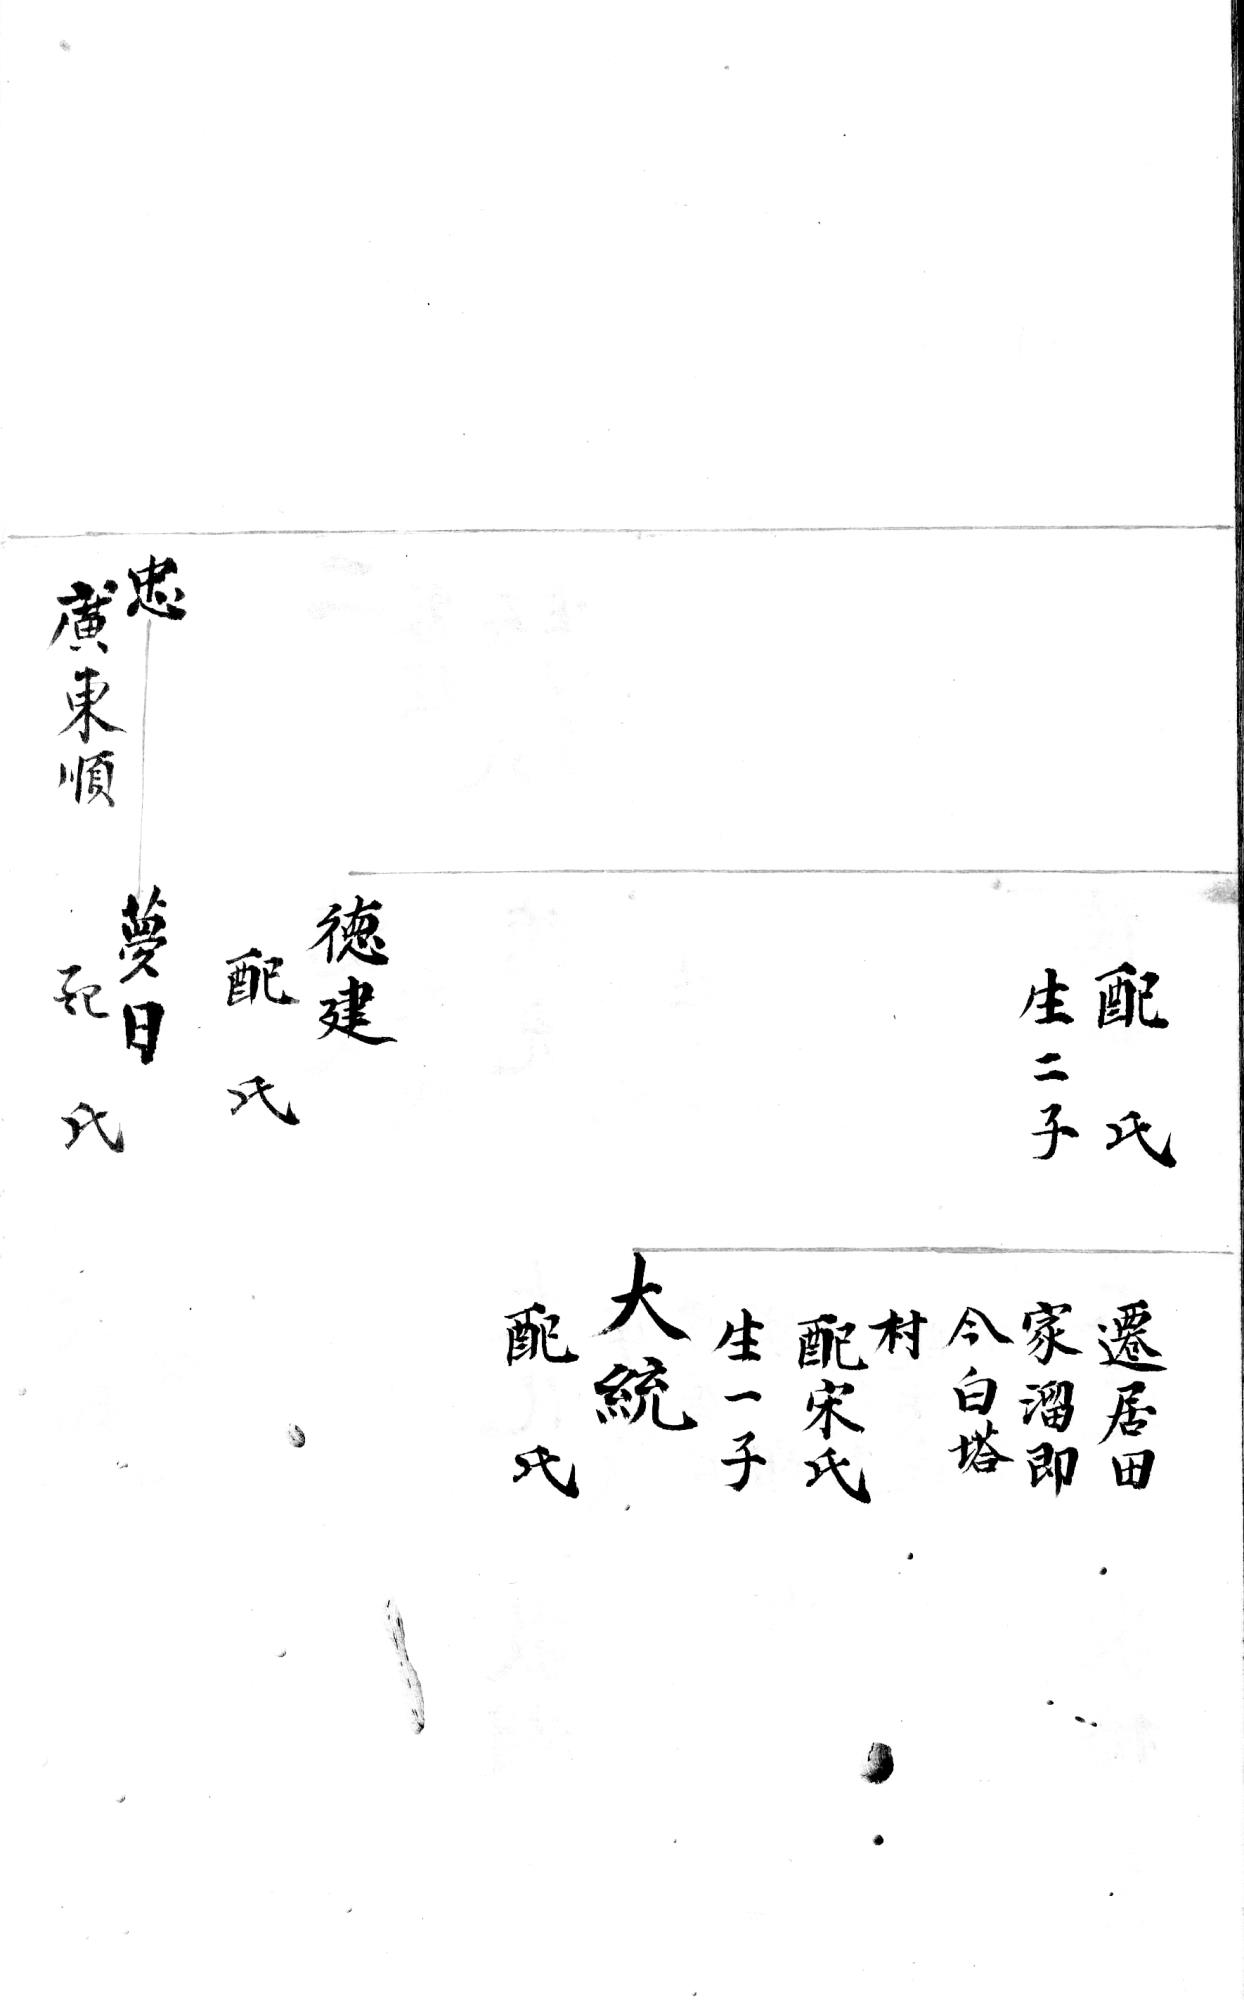 配　氏
生二子
遷居田
家溜即
今白塔
村
配宋氏
生一子
大統
配　氏
德建
配　氏
忠
廣東順
夢日
配　氏